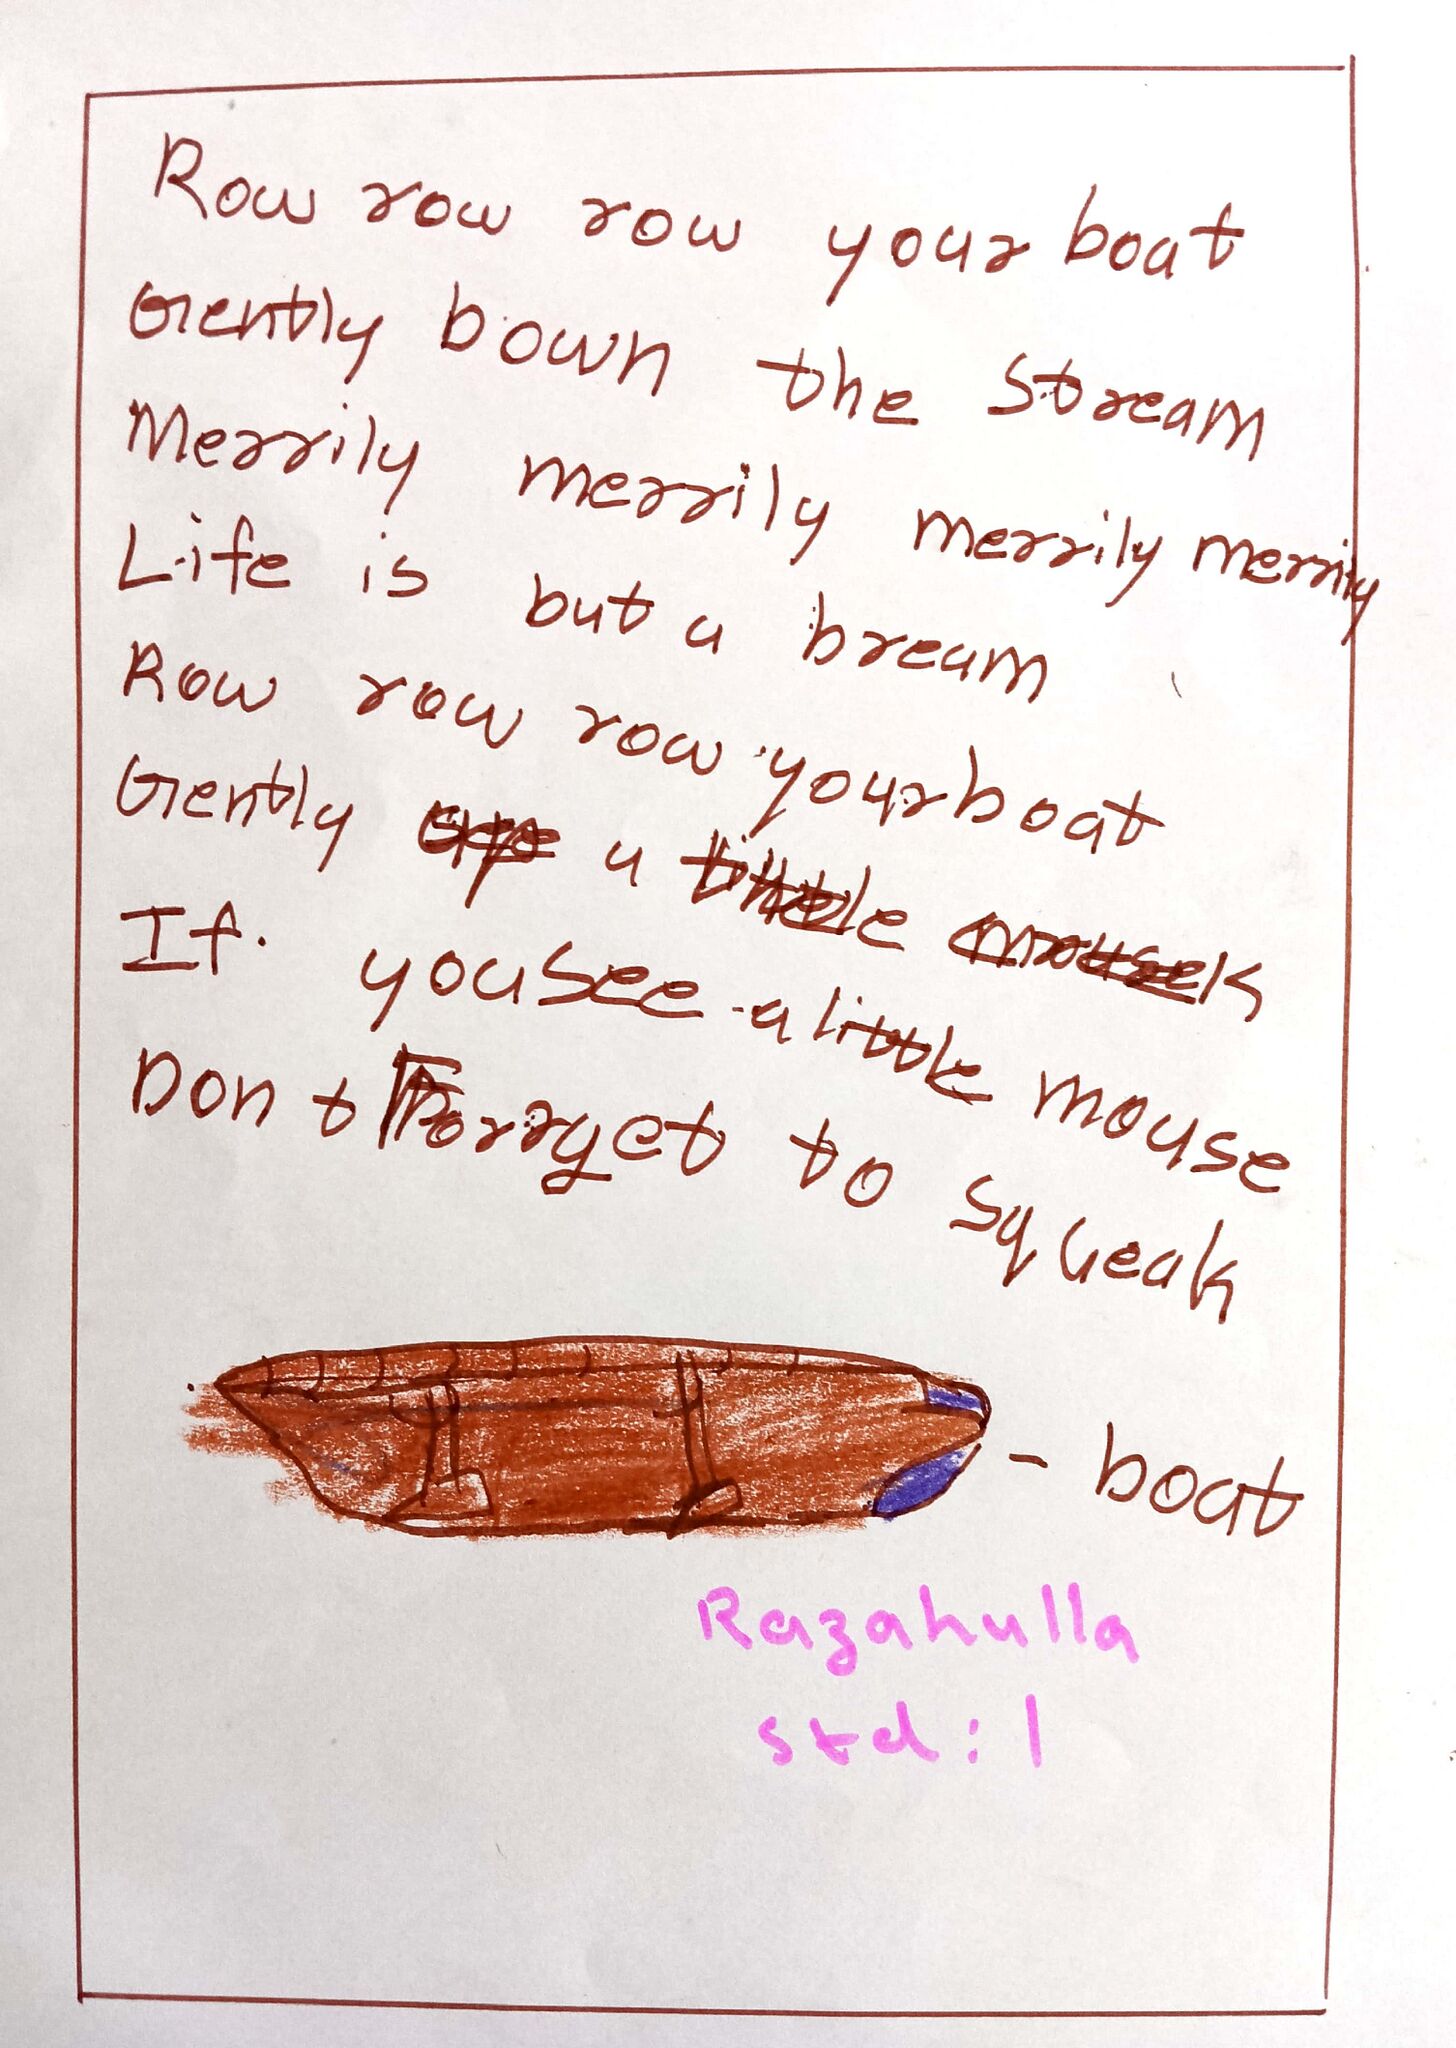 Row row row your boat
Gently bown the stream
Merrily merrily merrily merrily
Life is but a bream
Row row row your boat
Gently a
If you see a little mouse
Don t Forrget to squeak
- boat
Razahulla
std : 1